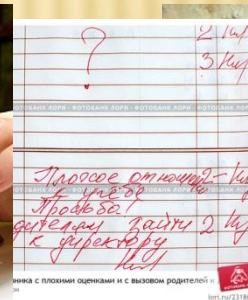 ?
2
3
ФОТОБАНК ЛОРИ · ФОТОБАНК ЛОРИ · ФОТОБАНК ЛОРИ
Плохое отношен 2
к учёбе
Просьба!
дителям зайти 2
к директору
ника с плохими оценками и с вызовом родителей к
lori.ru/2318